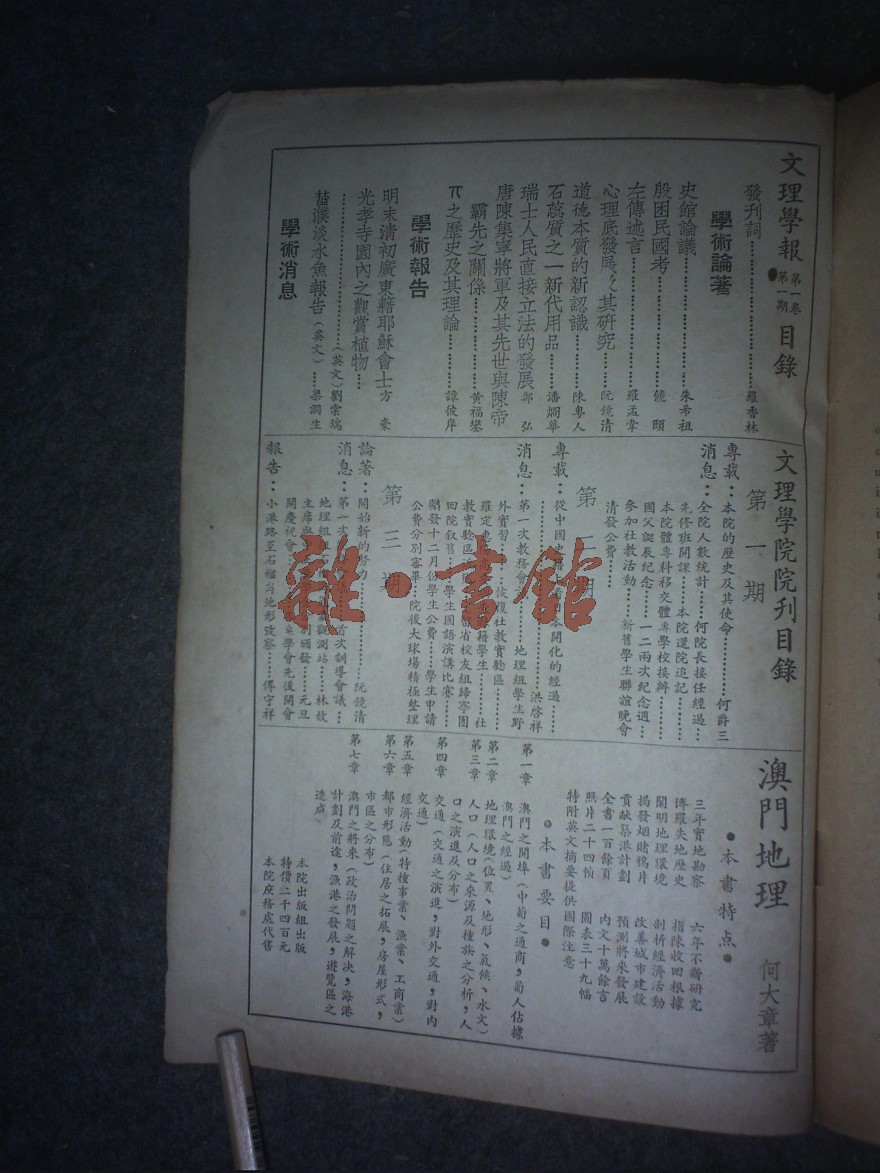 文理學報 第一卷第一期 目錄
發刊詞……羅香林
學術論著
史館論議……朱希祖
殷困民國考……饒 頤
左傳述言……羅孟韋
心理底發展及其研究……阮鏡清
道德本質的新認識……陳粵人
石蕊質之一新代用品……潘烱華
瑞士人民直接立法的發展……鄭 弘
唐陳集寗將軍及其先世與陳帝
霸先之關係……黃福鑾
π之歷史及其理論……譚彼岸
學術報告
明末清初廣東籍耶穌會士 方 豪
光孝寺園內之觀賞植物……
……(英文)劉棠瑞
菩濮淡水魚報告(英文)……梁潤生
學術消息
文理學院院刊目錄
第一期
專載：本院的歷史及其使命……何爵三
消息：全院人數統計……何院長接任經過……
先修班開課……本院還院追記……
本院體專科移交體專學校接辦……
國父誕辰紀念……一二兩次紀念週……
參加社教活動……新舊學生聯誼晚會
清發公費……
第二期
專載：從中國史
本開化的經過……
……洪啓祥
消息：第一次教務會
地理組學生野
外實習
恢復社教實驗區……
羅定
籍學生……社
教實驗區
留省校友組歸寧團
回院叙舊
學生國語演講比賽……
贈發十二月份學生公費……學生申請
公費分別審畢……院後大球場積極整理
第三期
論著：開始新的努力……阮鏡清
消息：第一次
首次訓導會議……
地理組
觀測站……林故
主席與
頒發……元旦
開慶祝會
學會先後開會
報告：小港路至石榴崗地形攷察……傅守祥
澳門地理 何大章著
●本書特点●
三年實地勘察 六年不斷研究
博羅失地歷史 指陳收回根據
闡明地理環境 剖析經濟活動
揭發烟賭鴉片 改善城市建設
貢献築港計劃 預測將來發展
全書一百餘頁 內文十萬餘言
照片二十四幀 圖表三十九幅
特附英文摘要提供國際注意
●本書要目●
第一章 澳門之開埠(中葡之通商，葡人佔據
澳門之經過)
第二章 地理環境(位置、地形、氣候、水文)
第三章 人口(人口之來源及種族之分析，人
口之演進及分布)
第四章 交通(交通之演進，對外交通，對內
交通)
第五章 經濟活動(特種事業、漁業、工商業)
第六章 都市形態(住居之拓展，房屋形式，
市區之分布)
第七章 澳門之將來(政治問題之解决，海港
計劃及前途，漁港之發展，遊覽區之
造成)
本院出版組出版
特價二千四百元
本院庶務處代售
雜·書館